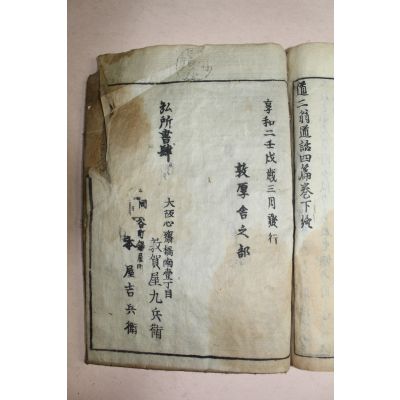 道二翁道話四篇卷下終
享和二壬戌歳三月發行
敦厚舎之部
弘所書肆
大阪心齋橋南壹丁目
敦賀屋九兵衛
同谷町
屋吉兵衛